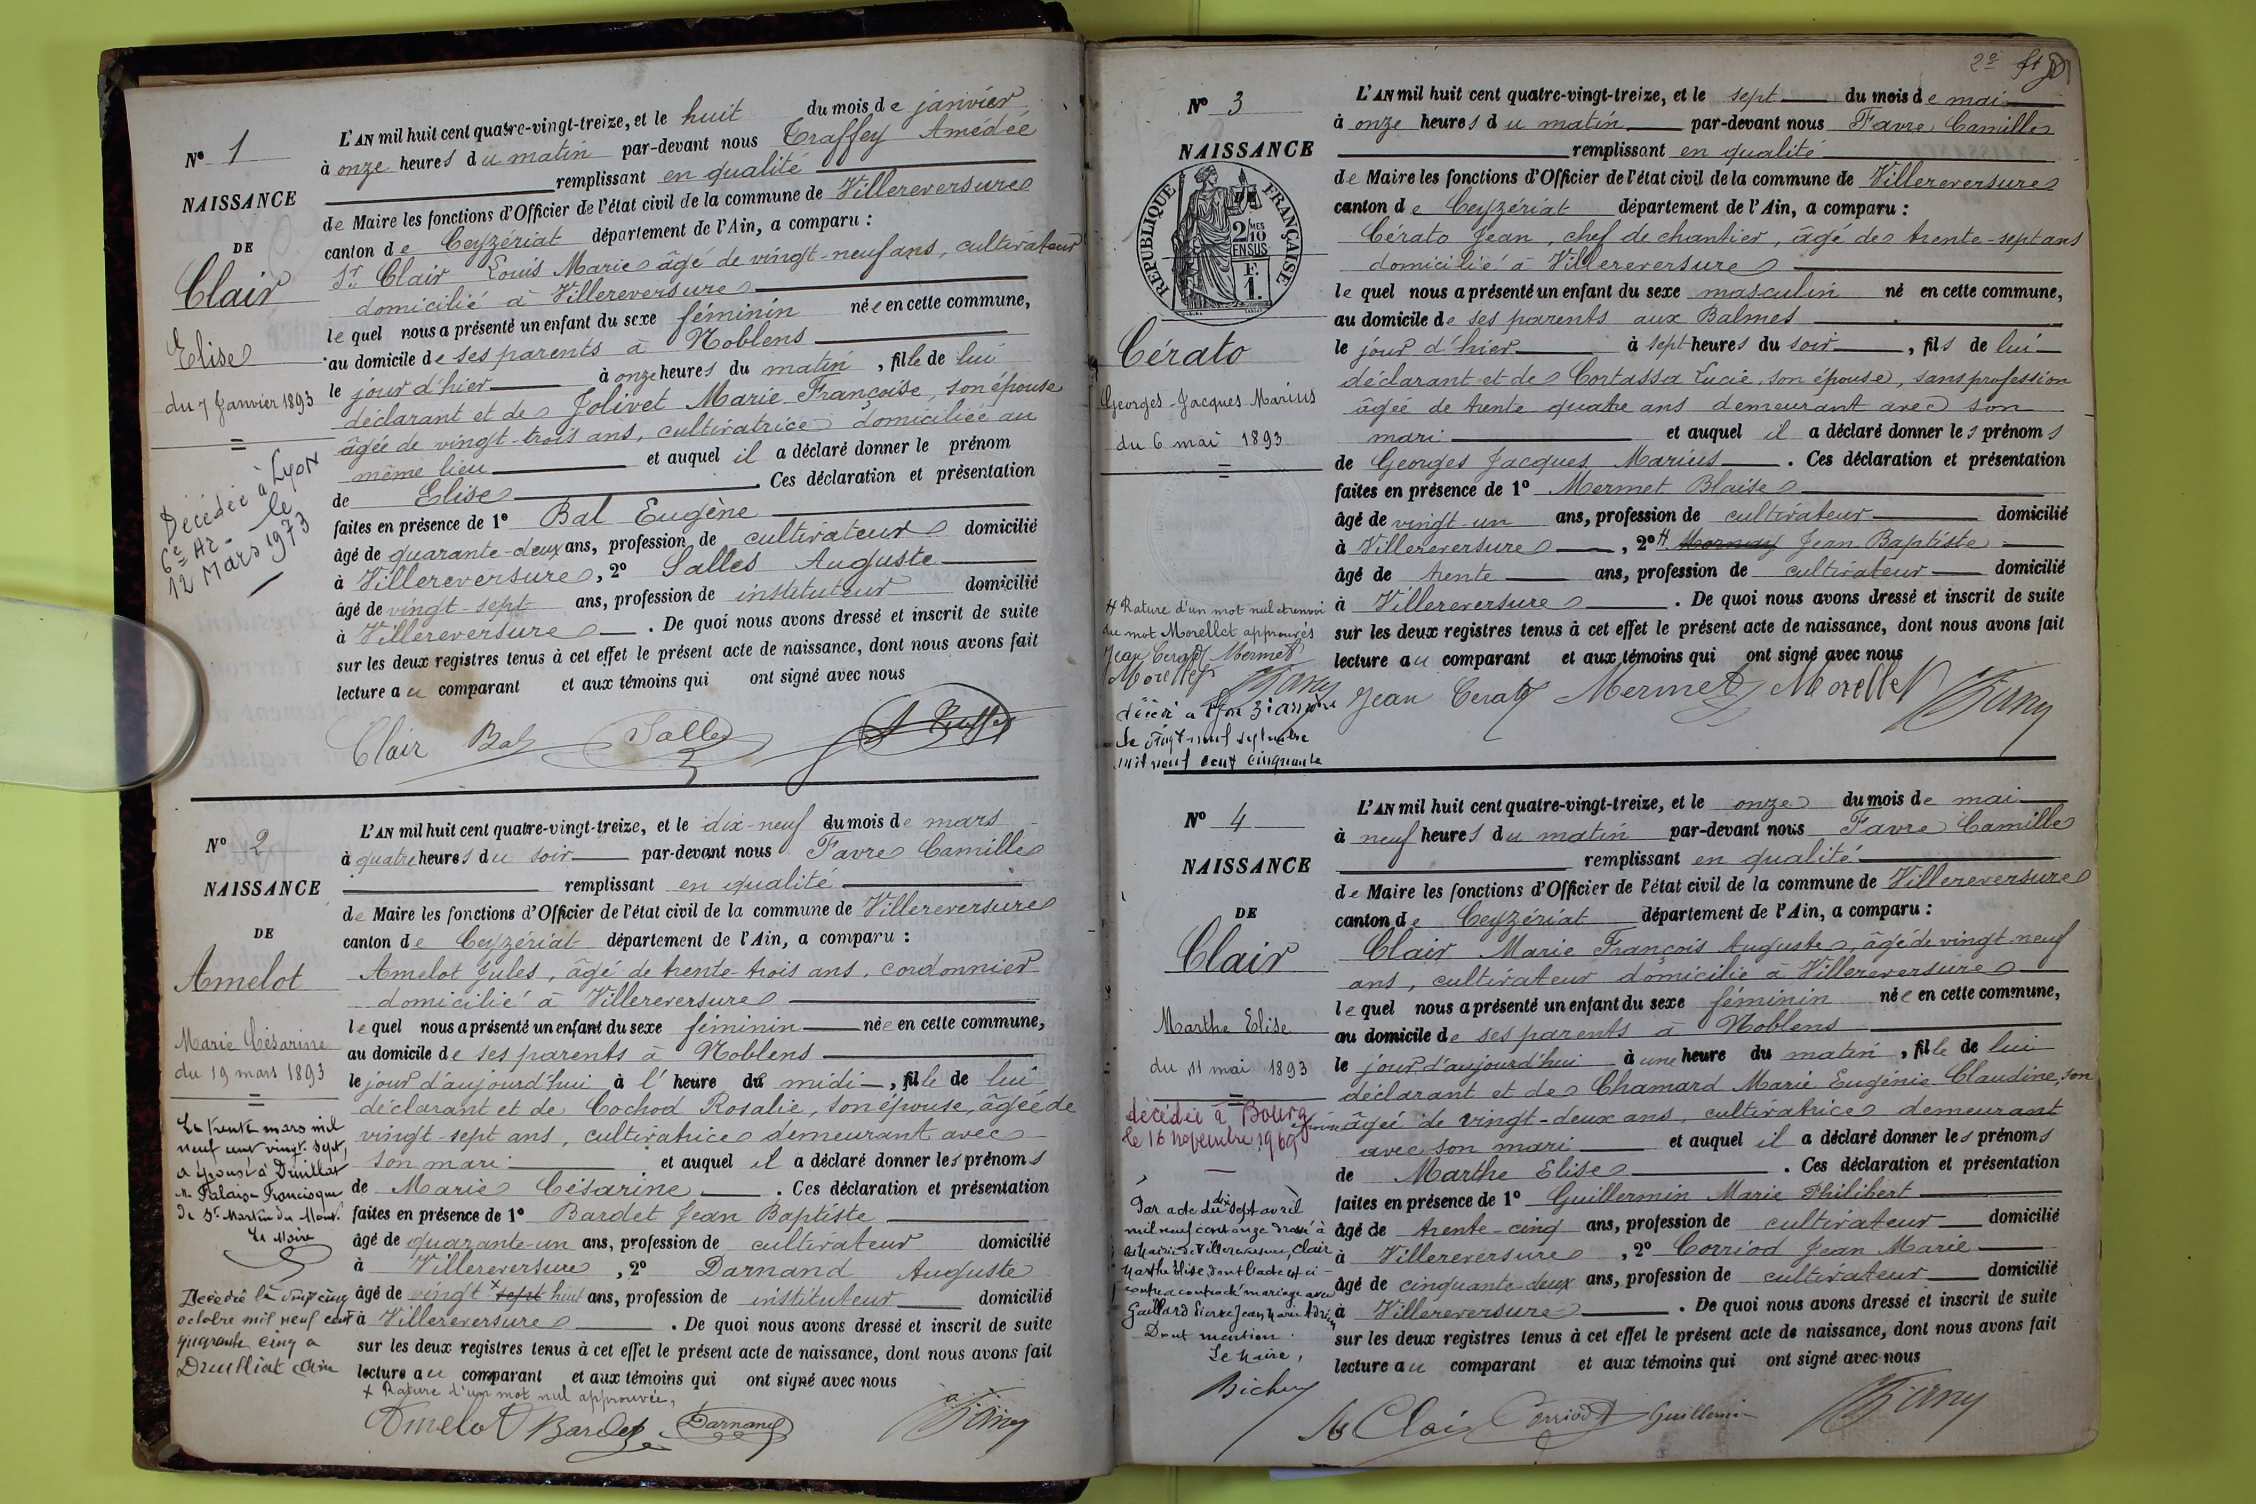 N° 1
NAISSANCE
DE
Clair
Elise
du 7 Janvier 1893
Décédée à Lyon
6e Ar - le
12 Mars 1973
L'AN mil huit cent quatre-vingt-treize, et le huit du mois de janvier
à onze heures du matin par-devant nous Traffey Amédée
remplissant en qualité
de Maire les fonctions d'Officier de l'état civil de la commune de Villereversure
canton de Ceyzériat département de l'Ain, a comparu :
Sr Clair Louis Marie âgé de vingt-neuf ans, cultivateur
domicilié à Villereversure
lequel nous a présenté un enfant du sexe féminin née en cette commune,
au domicile de ses parents à Noblens
le jour d'hier à onze heures du matin, fille de lui
déclarant et de Jolivet Marie Françoise, son épouse
âgée de vingt-trois ans, cultivatrice domiciliée au
même lieu et auquel il a déclaré donner le prénom
de Elise. Ces déclaration et présentation
faites en présence de 1° Bal Eugène
âgé de quarante-deux ans, profession de cultivateur domicilié
à Villereversure, 2° Salles Auguste
âgé de vingt-sept ans, profession de instituteur domicilié
à Villereversure. De quoi nous avons dressé et inscrit de suite
sur les deux registres tenus à cet effet le présent acte de naissance, dont nous avons fait
lecture au comparant et aux témoins qui ont signé avec nous
Clair Bal Salles A Traffey
N° 2
NAISSANCE
DE
Amelot
Marie Césarine
du 19 mars 1893
Le trente mars mil
neuf cent vingt-sept,
a épousé à Druillat
Mr Palaise Francisque
de St Martin du Mont.
Le Maire
Décédée le vingt cinq
octobre mil neuf cent
quarante cinq à
Druilliat Ain
L'AN mil huit cent quatre-vingt-treize, et le dix-neuf du mois de mars
à quatre heures du soir par-devant nous Favre Camille
remplissant en qualité
de Maire les fonctions d'Officier de l'état civil de la commune de Villereversure
canton de Ceyzériat département de l'Ain, a comparu :
Amelot Jules, âgé de trente-trois ans, cordonnier
domicilié à Villereversure
lequel nous a présenté un enfant du sexe féminin née en cette commune,
au domicile de ses parents à Noblens
le jour d'aujourd'hui à l'heure du midi, fille de lui
déclarant et de Cochod Rosalie, son épouse, âgée de
vingt-sept ans, cultivatrice demeurant avec
son mari et auquel il a déclaré donner les prénoms
de Marie Césarine. Ces déclaration et présentation
faites en présence de 1° Bardet Jean Baptiste
âgé de quarante-un ans, profession de cultivateur domicilié
à Villereversure, 2° Darnand Auguste
âgé de vingt x sept huit ans, profession de instituteur domicilié
à Villereversure. De quoi nous avons dressé et inscrit de suite
sur les deux registres tenus à cet effet le présent acte de naissance, dont nous avons fait
lecture au comparant et aux témoins qui ont signé avec nous
x Rature d'un mot nul approuvée,
Amelot Bardet Darnand
2e ft
N° 3
NAISSANCE
RÉPUBLIQUE FRANÇAISE
2/10MES
EN SUS
F.
1.
Cérato
Georges-Jacques Marius
du 6 mai 1893
# Rature d'un mot nul et renvoi
du mot Morellet approuvés
Jean Cerato Mermet
Morellet
décédé à Lyon 3e arr
le vingt neuf septembre
mil neuf cent cinquante
L'AN mil huit cent quatre-vingt-treize, et le sept du mois de mai
à onze heures du matin par-devant nous Favre Camille
remplissant en qualité
de Maire les fonctions d'Officier de l'état civil de la commune de Villereversure
canton de Ceyzériat département de l'Ain, a comparu :
Cérato Jean, chef de chantier, âgé de trente-sept ans
domicilié à Villereversure
lequel nous a présenté un enfant du sexe masculin né en cette commune,
au domicile de ses parents aux Balmes
le jour d'hier à sept heures du soir, fils de lui
déclarant et de Cortassa Lucie, son épouse, sans profession
âgée de trente quatre ans demeurant avec son
mari et auquel il a déclaré donner les prénoms
de Georges Jacques Marius. Ces déclaration et présentation
faites en présence de 1° Mermet Blaise
âgé de vingt-un ans, profession de cultivateur domicilié
à Villereversure, 2° # Mornay Jean Baptiste
âgé de trente ans, profession de cultivateur domicilié
à Villereversure. De quoi nous avons dressé et inscrit de suite
sur les deux registres tenus à cet effet le présent acte de naissance, dont nous avons fait
lecture au comparant et aux témoins qui ont signé avec nous
Jean Cerato Mermet Morellet
N° 4
NAISSANCE
DE
Clair
Marthe Elise
du 11 mai 1893
décédée à Bourg
le 16 novembre 1969
Par acte du dix sept avril
mil neuf cent onze dressé à
la Mairie de Villereversure, Clair
Marthe Elise dont l'acte est ci-
contre a contracté mariage avec
Gaillard Pierre Jean Marie Adrien
Dont mention.
Le Maire,
L'AN mil huit cent quatre-vingt-treize, et le onze du mois de mai
à neuf heures du matin par-devant nous Favre Camille
remplissant en qualité
de Maire les fonctions d'Officier de l'état civil de la commune de Villereversure
canton de Ceyzériat département de l'Ain, a comparu :
Clair Marie François Auguste, âgé de vingt-neuf
ans, cultivateur domicilié à Villereversure
lequel nous a présenté un enfant du sexe féminin née en cette commune,
au domicile de ses parents à Noblens
le jour d'aujourd'hui à une heure du matin, fille de lui
déclarant et de Chamard Marie Eugénie Claudine, son
épouse âgée de vingt-deux ans, cultivatrice demeurant
avec son mari et auquel il a déclaré donner les prénoms
de Marthe Elise. Ces déclaration et présentation
faites en présence de 1° Guillermin Marie Philibert
âgé de trente-cinq ans, profession de cultivateur domicilié
à Villereversure, 2° Corriod Jean Marie
âgé de cinquante-deux ans, profession de cultivateur domicilié
à Villereversure. De quoi nous avons dressé et inscrit de suite
sur les deux registres tenus à cet effet le présent acte de naissance, dont nous avons fait
lecture au comparant et aux témoins qui ont signé avec nous
Clair Corriod Guillermin